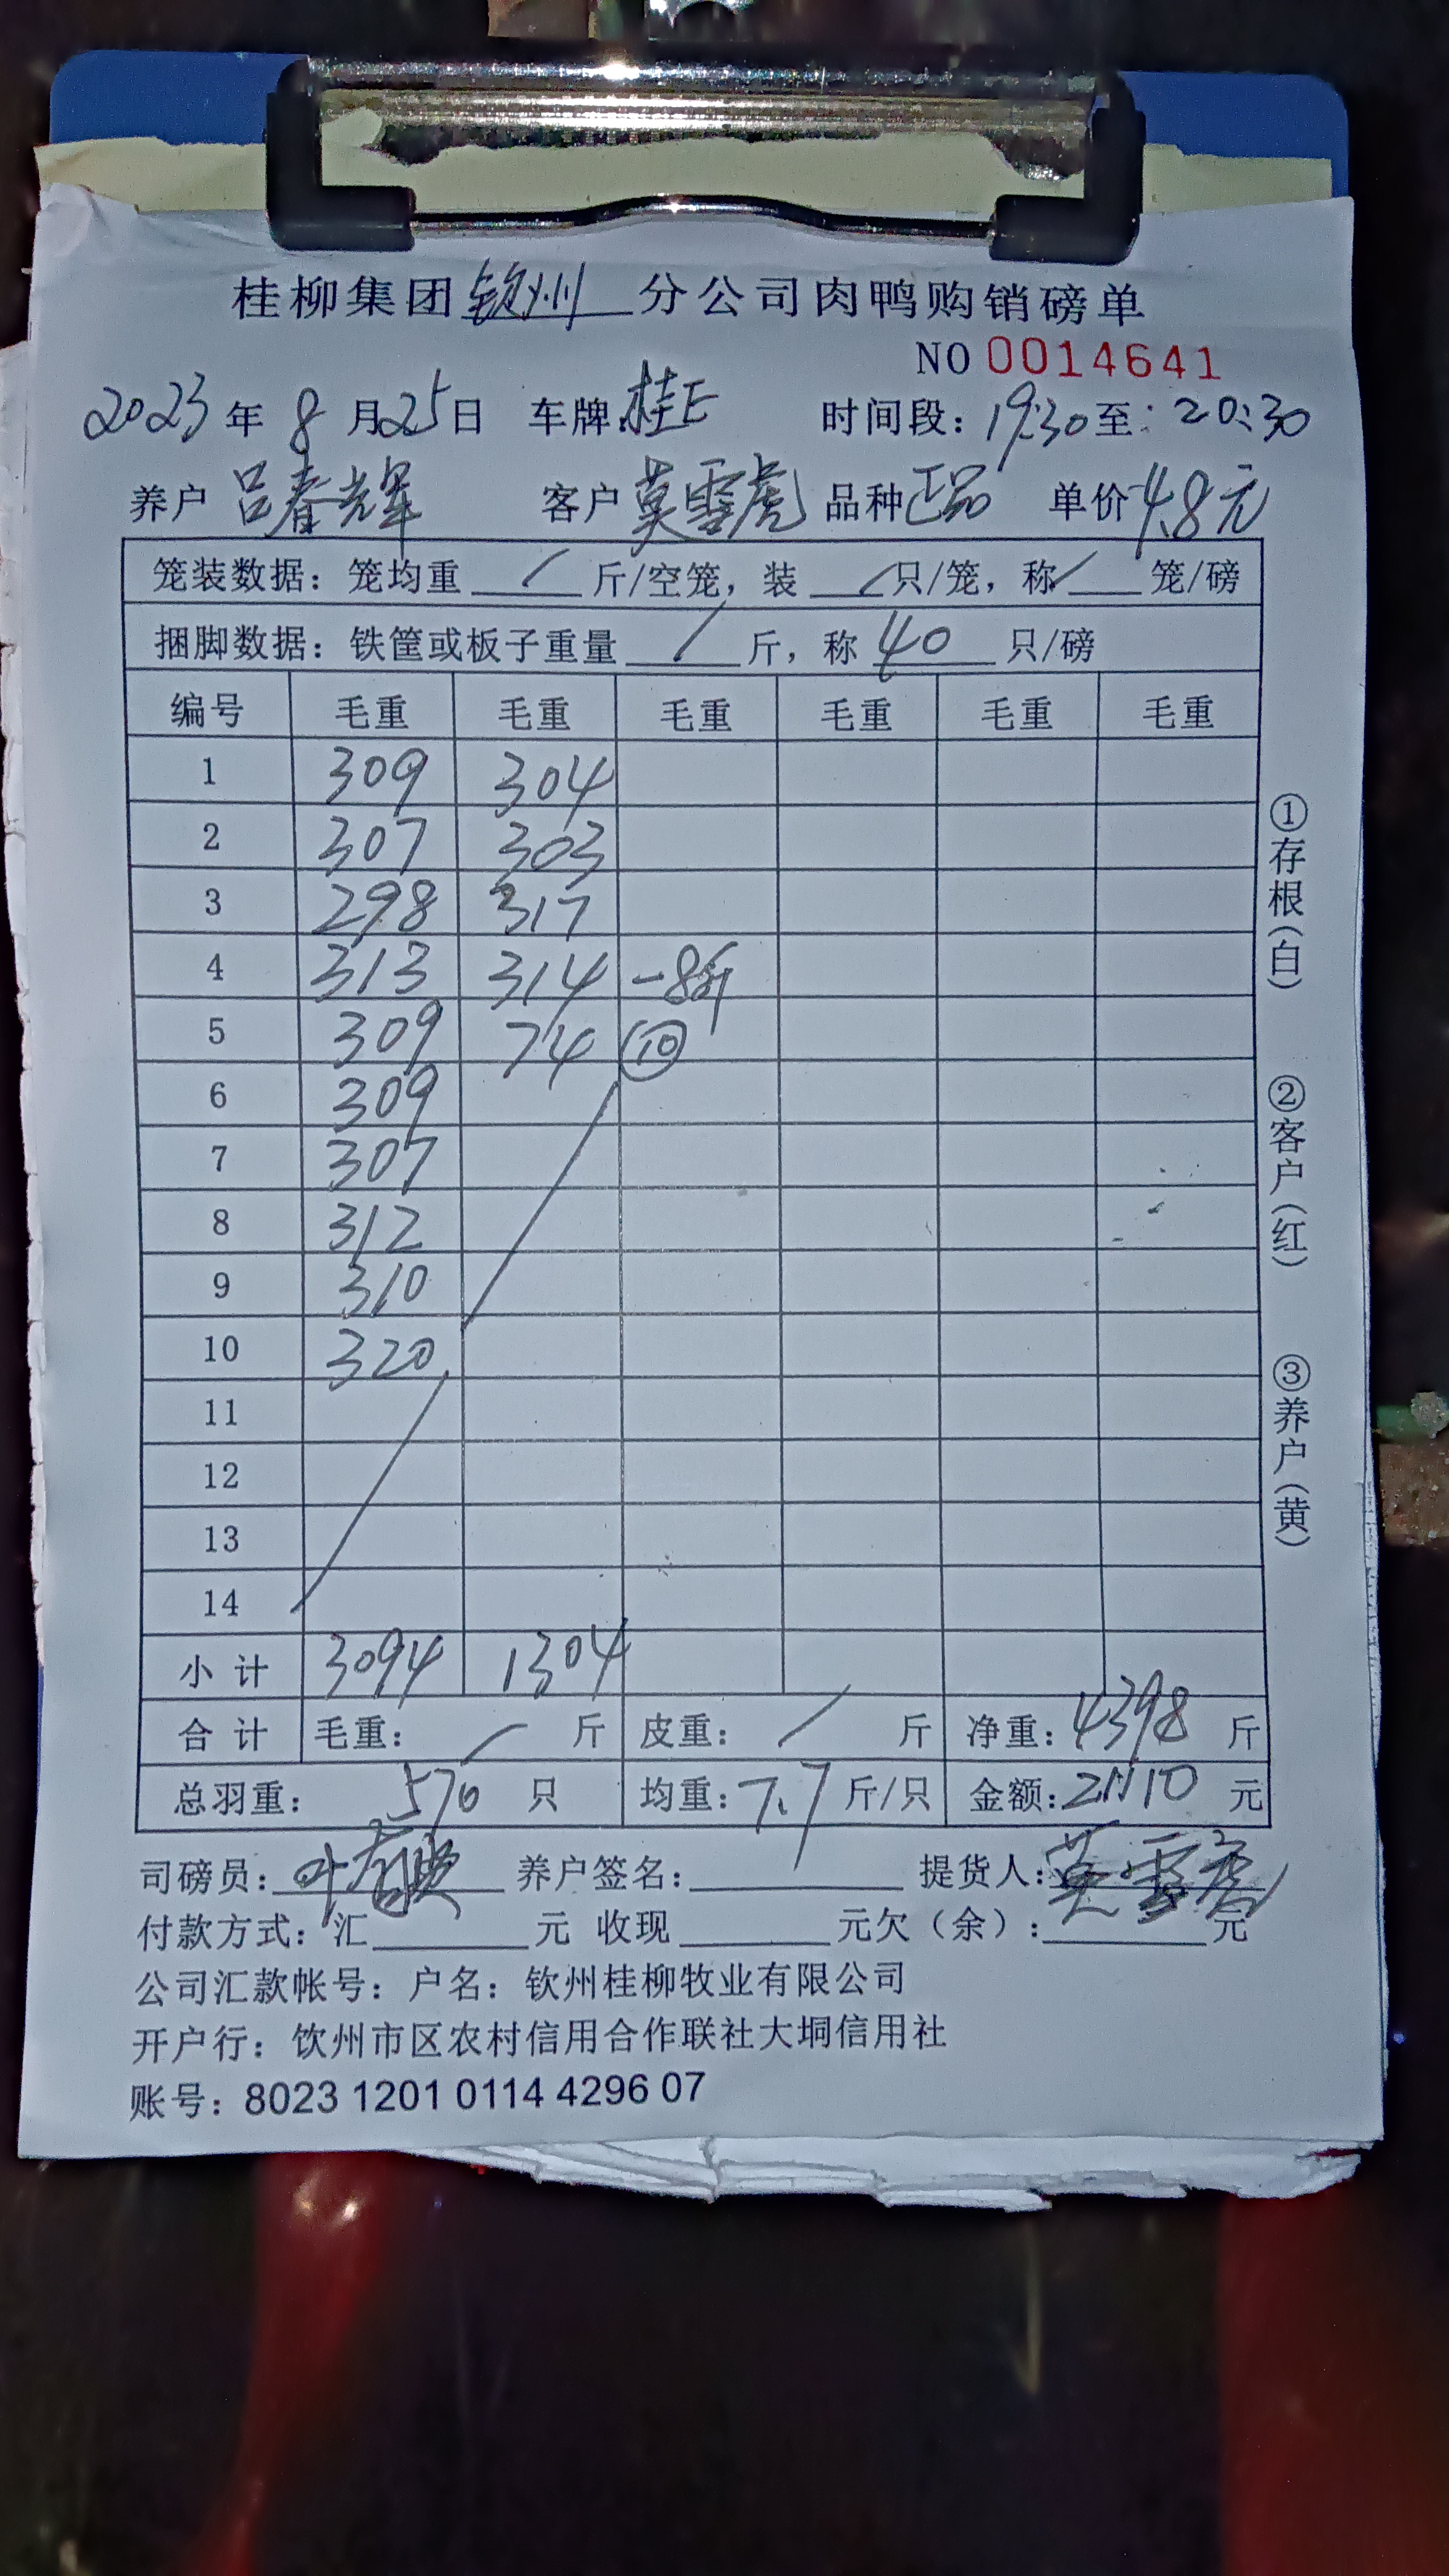 桂柳集团钦州分公司肉鸭购销磅单
NO 0014641
2023年8月25日 车牌:桂E 时间段:19:30至:20:30
养户 吕春辉 客户 莫雪虎 品种 正品 单价 4.8元
笼装数据:笼均重 / 斤/空笼,装 / 只/笼,称 / 笼/磅
捆脚数据:铁筐或板子重量 / 斤,称 40 只/磅
编号 毛重 毛重 毛重 毛重 毛重 毛重
1 309 304
2 307 303
3 298 317
4 313 314 -8斤
5 309 74 ⑩
6 309
7 307
8 312
9 310
10 320
11
12
13
14
小计 3094 1304
合计 毛重: / 斤 皮重: / 斤 净重:4398 斤
总羽重: 570 只 均重:7.7 斤/只 金额:21110 元
司磅员: 养户签名: 提货人:莫雪虎
付款方式:汇 元 收现 元欠(余): 元
公司汇款帐号:户名:钦州桂柳牧业有限公司
开户行:钦州市区农村信用合作联社大垌信用社
账号:8023 1201 0114 4296 07
①存根(白)
②客户(红)
③养户(黄)